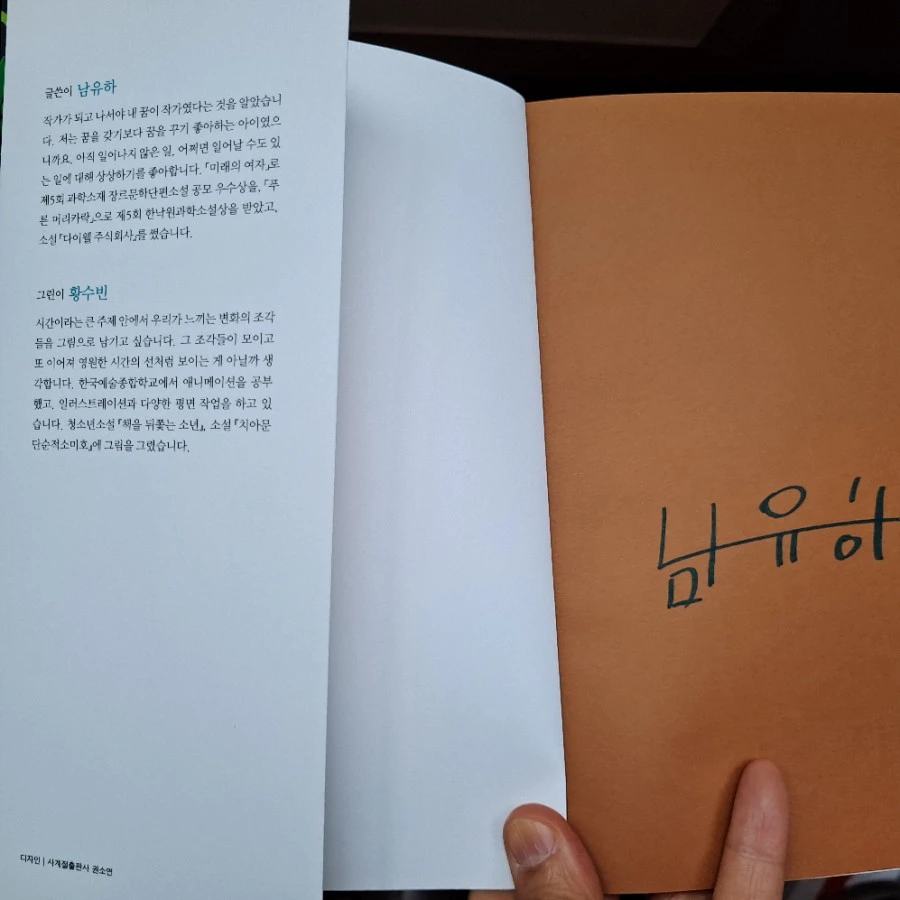 글쓴이 남유하
작가가 되고 나서야 내 꿈이 작가였다는 것을 알았습니
다. 저는 꿈을 갖기보다 꿈을 꾸기 좋아하는 아이였으
니까요. 아직 일어나지 않은 일, 어쩌면 일어날 수도 있
는 일에 대해 상상하기를 좋아합니다. 「미래의 여자」로
제5회 과학소재 장르문학단편소설 공모 우수상을, 「푸
른 머리카락」으로 제5회 한낙원과학소설상을 받았고,
소설 『다이웰 주식회사』를 썼습니다.
그린이 황수빈
시간이라는 큰 주제 안에서 우리가 느끼는 변화의 조각
들을 그림으로 남기고 싶습니다. 그 조각들이 모이고
또 이어져 영원한 시간의 선처럼 보이는 게 아닐까 생
각합니다. 한국예술종합학교에서 애니메이션을 공부
했고, 일러스트레이션과 다양한 평면 작업을 하고 있
습니다. 청소년소설 『책을 뒤쫓는 소년』, 소설 『치아문
단순적소미호』에 그림을 그렸습니다.
디자인 | 사계절출판사 권소연
남유하